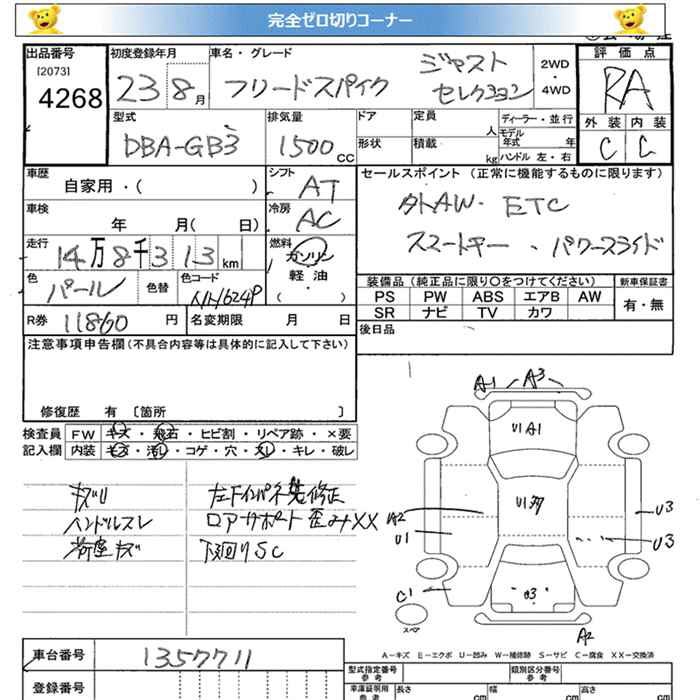 完全ゼロ切りコーナー
出品番号
[2073]
4268
初度登録年月
23 8月
車名・グレード
フリードスパイク
ジャスト
セレクション
2WD
・
4WD
評価点
RA
外装 内装
C C
型式
DBA-GB3
排気量
1500 CC
ドア
形状
定員
人
積載
kg
ディーラー・並行
モデル
年式 年
ハンドル 左・右
車歴
自家用・( )
シフト
AT
セールスポイント (正常に機能するものに限ります)
外AW・ ETC
スマートキー ・ パワースライド
車検
年 月( 日)
冷房
AC
走行
14万8千313km
燃料
ガソリン
軽油
( ・ )
色
パール
色替
色コード
NH624P
装備品 (純正品に限り〇をつけてください)
PS PW ABS エアB AW
SR ナビ TV カワ
新車保証書
有・無
R券 11860 円
名変期限 月 日
後日品
注意事項申告欄(不具合内容等は具体的に記入して下さい)
修復歴 有 〔箇所 〕
検査員
記入欄
FW キズ・飛石・ヒビ割・リペア跡・×要
内装 キズ・汚レ・コゲ・穴・スレ・キレ・破レ
キズU
ハンドルスレ
荷室キズ
左フインパネ先修正
ロアーサポート歪みXX
下廻りSC
A1 A3
U1 A1
A2
U1
U3
U3
C1
スペア
A2
A-キズ E-エクボ U-凹み W-補修跡 S-サビ C-腐食 XX-交換済
車台番号
1357711
登録番号
型式指定番号
参考
類別区分番号
参考
車庫証明用
参考
長さ cm
幅 cm
高さ cm